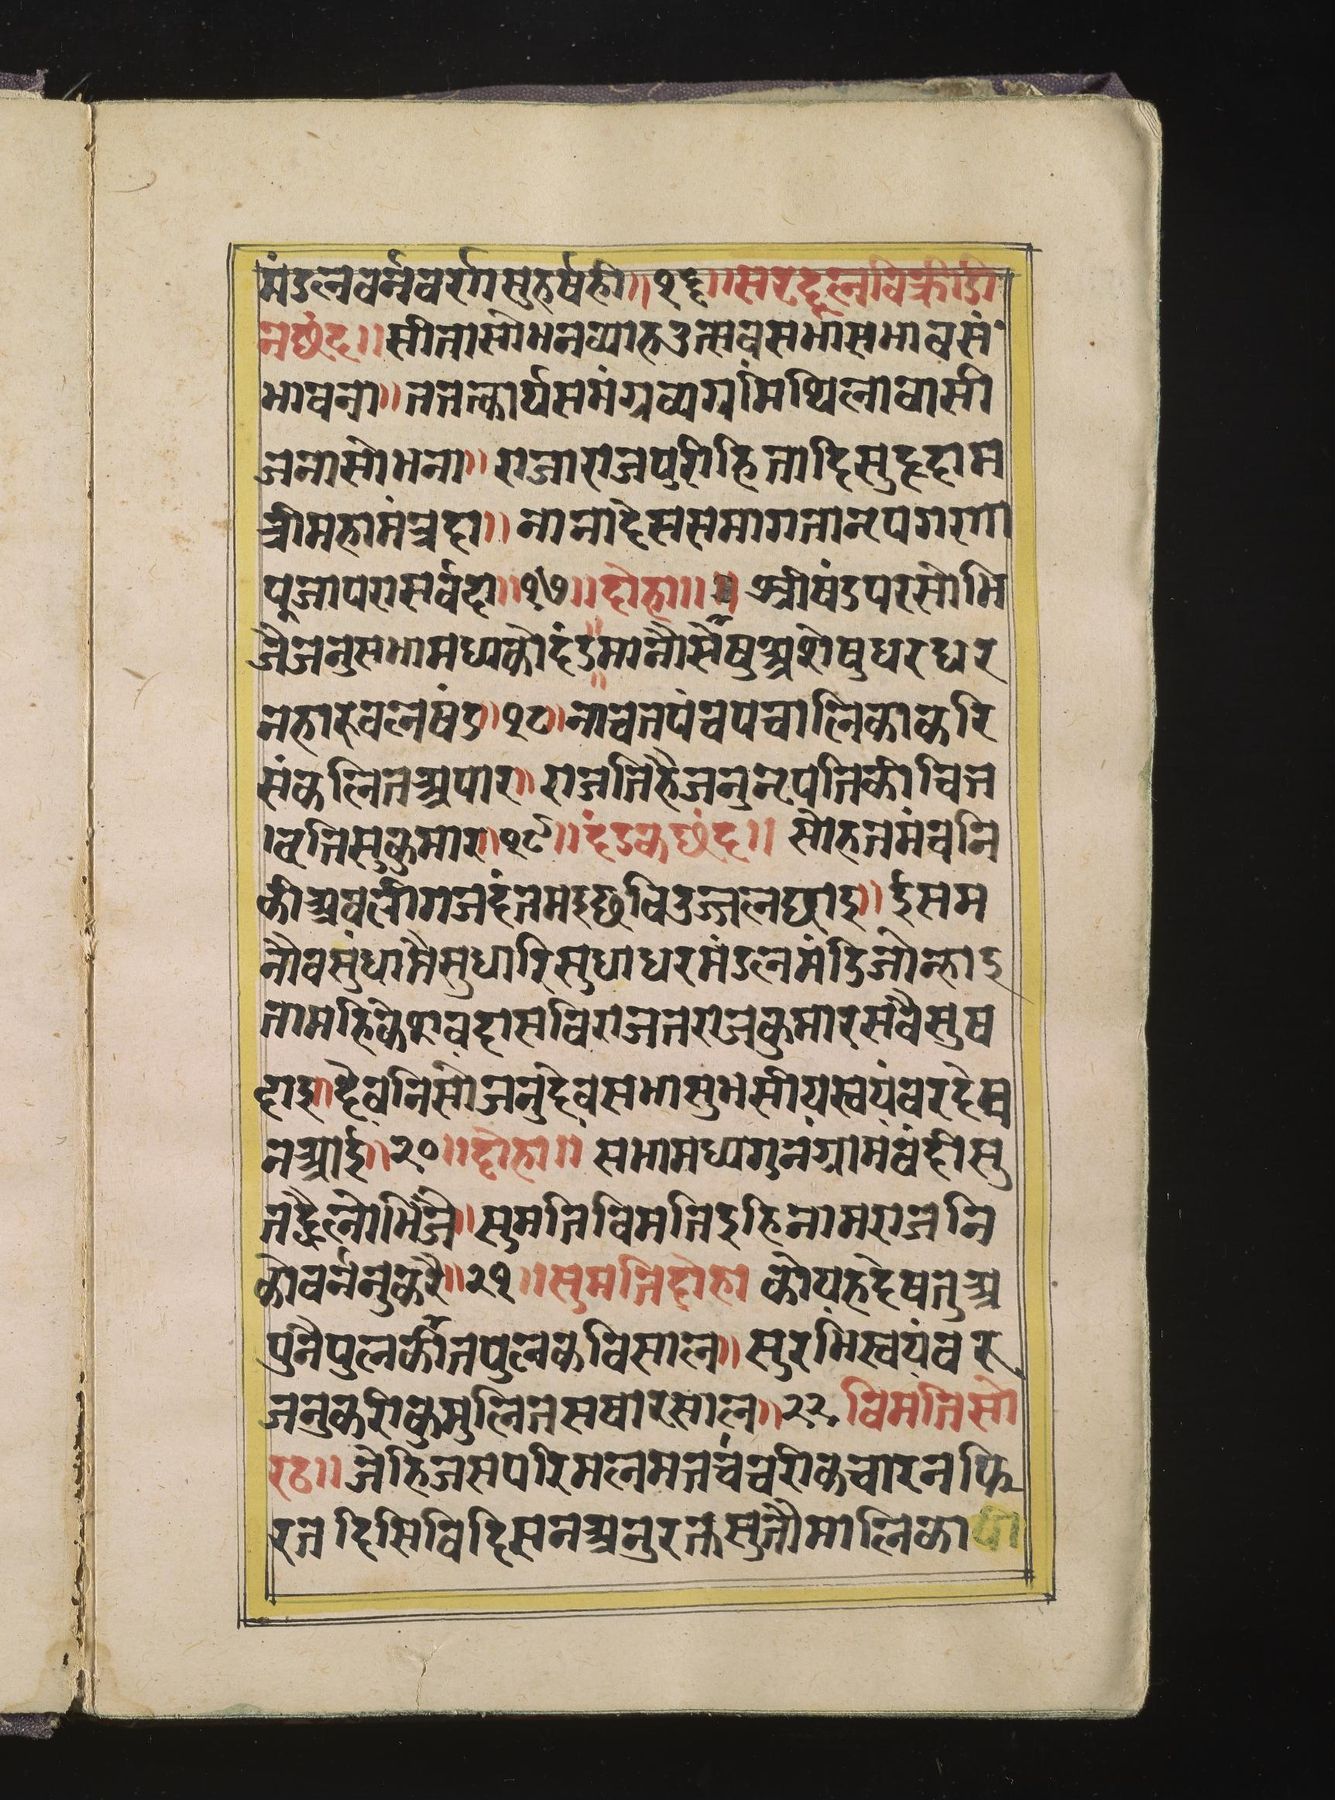 मंडलवर्नवर्रागसुहर्षही॥१६॥सरदूलविक्रीडी
तछंद॥सीतासोभनव्याहउत्सवसभासंभावसं
भावना॥ततत्कार्यसमंग्रव्यग्रमिथिलावासी
जनासोभना॥राजाराजपुरोहितादिसुहृदामं
त्रीमहामंत्रदा॥नानादेससमागतानृपगणा
पूजापरासर्वदा॥१७॥दोहा॥श्रीषंडपरसोभि
जैजनुसभामध्यकोदंडमानौसेषुअशेषुधरधर
नहारुबलषंड॥१८॥नाचतपंचपचालिकाकरि
संकलितअपार॥राजतिहैजनुनृपतिकीचित
वतिसुकुमार॥१९॥दंडकछंद॥सोहतमंचनि
कीअवलीगजदंतमइछविउज्जलछाइ॥ईसम
नौवसुंधामैसुधारिसुधाधरमंडलमंडिजोन्हाइ
तामहिकेशवदासविराजतराजकुमारसवैसुष
दाइ॥दैवनिसौजनुदेवसभासुभसीयस्वयंवरदेष
नआई॥२०॥दोहा॥सभामध्यगुनग्रामबंदीसु
तद्वैलोभिजै॥सुमतिविमतिइहिनामराजनि
कोवर्ननुकरै॥२१॥सुमतिदोहा कोयहदेषतुअ
पुनैपुलकीतपुलकविसाल॥सुरभिस्वयंवर
जनुकरीकुसुलितसषारसाल॥२२विमतिसो
रठ॥जैहिजसपरिमलमतचंचरीकचारनफि
रतदिसिविदिसनअनुरक्तसुतौमालिकापी